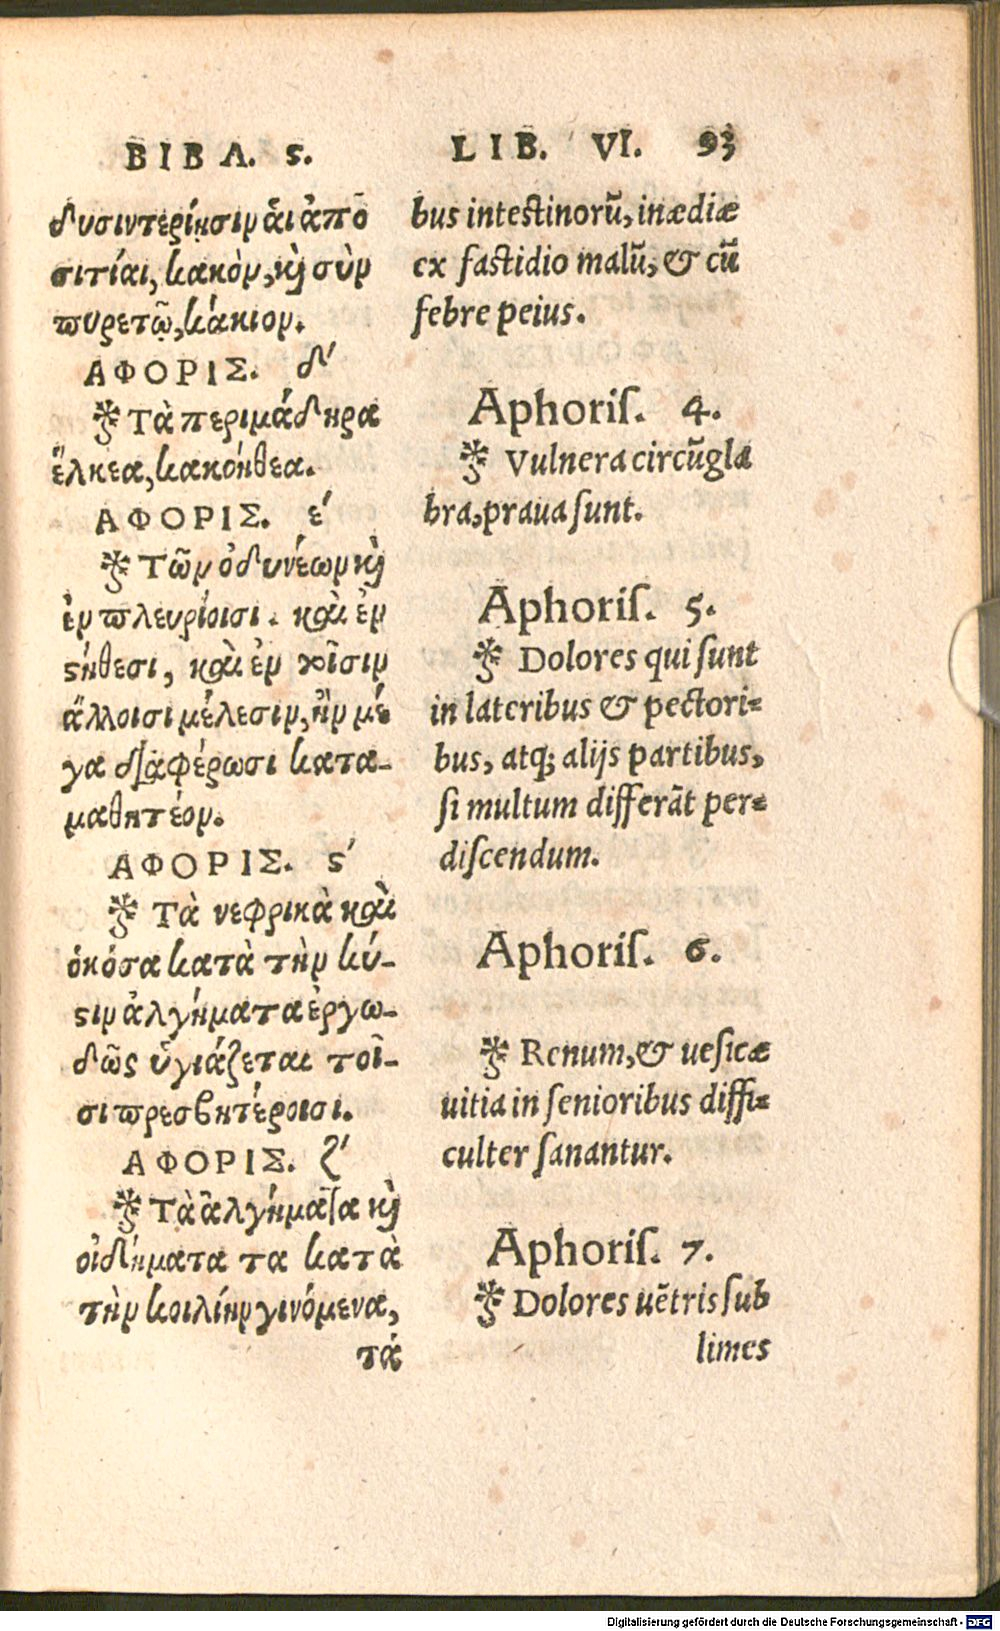 ΒΙΒΛ. ϛ.
δυσιντερίῃσιν αἱ ἀπο
σιτίαι, κακὸν, κỳ σὺν
πυρετῷ, κάκιον.
ΑΦΟΡΙΣ. δʹ
Τὰ περιμάδηρα
ἕλκεα, κακοήθεα.
ΑΦΟΡΙΣ. εʹ
Τῶν ὀδυνέων κỳ
ἐν πλευρίοισι. καὶ ἐν
ϛήθεσι, καὶ ἐν τοῖσιν
ἄλλοισι μέλεσιν, ἢν μέ
γα διαφέρωσι κατα-
μαθητέον.
ΑΦΟΡΙΣ. ϛʹ
Τὰ νεφρικὰ καὶ
ὁκόσα κατὰ τὴν κύ-
ϛιν ἀλγήματα ἐργω-
δῶς ὑγιάζεται τοῖ-
σι πρεσβητέροισι.
ΑΦΟΡΙΣ. ζʹ
Τὰ ἀλγήματα κỳ
οἰδήματα τα κατὰ
τὴν κοιλίην γινόμενα,
τά
LIB. VI. 93
bus intestinorũ, inædiæ
ex fastidio malũ, & cũ
febre peius.
Aphoriſ. 4.
Vulnera circũgla
bra, praua ſunt.
Aphoriſ. 5.
Dolores qui ſunt
in lateribus & pectori=
bus, atq; alijs partibus,
ſi multum differãt per=
diſcendum.
Aphoriſ. 6.
Renum, & ueſicæ
uitia in ſenioribus diffi=
culter ſanantur.
Aphoriſ. 7.
Dolores uẽtris ſub
limes
Digitalisierung gefördert durch die Deutsche Forschungsgemeinschaft - DFG